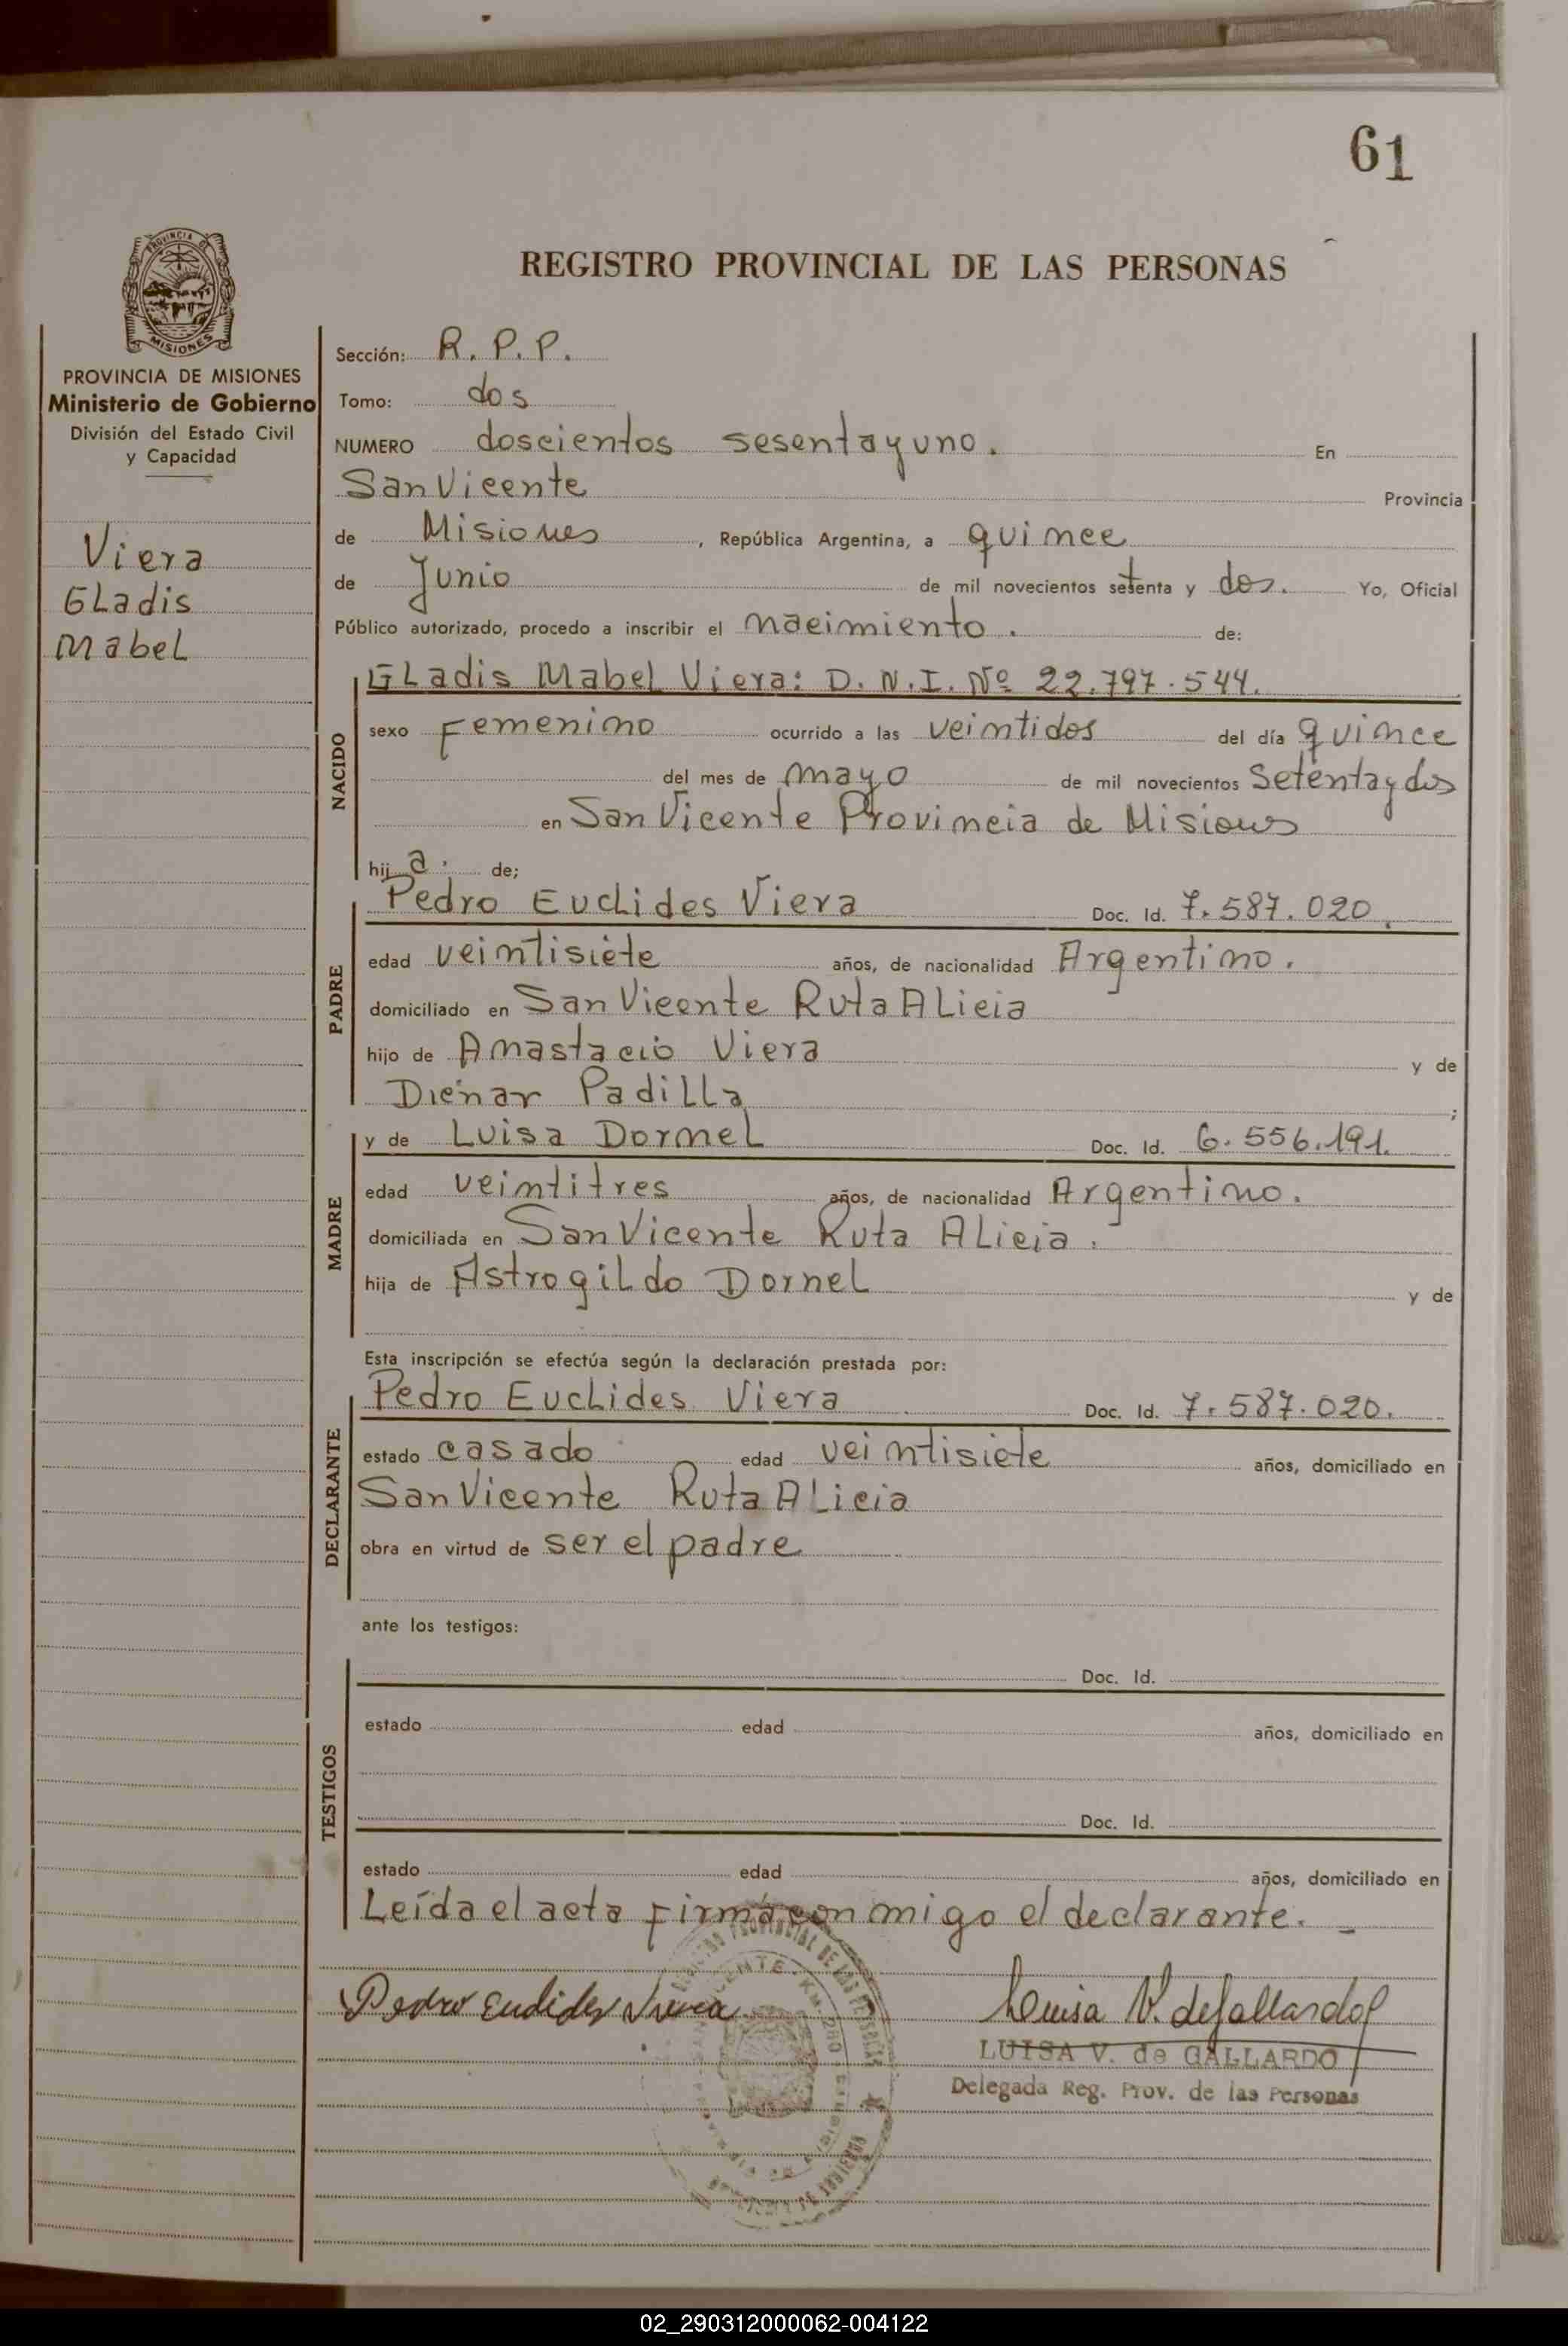 61
REGISTRO PROVINCIAL DE LAS PERSONAS
PROVINCIA DE MISIONES
Ministerio de Gobierno
División del Estado Civil
y Capacidad
Viera
GLadis
Mabel
Sección: R. P. P.
Tomo: dos
NUMERO doscientos sesentayuno. En
San Vicente Provincia
de Misiones, República Argentina, a quince
de Junio de mil novecientos setenta y dos. Yo, Oficial
Público autorizado, procedo a inscribir el nacimiento. de:
NACIDO
GLadis Mabel Viera: D. N. I. Nº 22.797.544.
sexo Femenino ocurrido a las veintidos del día quince
del mes de mayo de mil novecientos Setentaydos
en San Vicente Provincia de Misiones
hija. de;
PADRE
Pedro Euclides Viera Doc. Id. 7.587.020.
edad veintisiete años, de nacionalidad Argentino.
domiciliado en San Vicente Ruta ALicia
hijo de Anastacio Viera y de
Dienar PadiLLa;
MADRE
y de Luisa DorneL Doc. Id. 6.556.191.
edad veintitres años, de nacionalidad Argentino.
domiciliada en San Vicente Ruta ALicia.
hija de AstrogiLdo Dornel y de
Esta inscripción se efectúa según la declaración prestada por:
DECLARANTE
Pedro Euclides Viera Doc. Id. 7.587.020.
estado casado edad veintisiete años, domiciliado en
San Vicente Ruta ALicia
obra en virtud de ser el padre
ante los testigos:
TESTIGOS
Doc. Id.
estado edad años, domiciliado en
Doc. Id.
estado edad años, domiciliado en
Leída el acta firma con migo el declarante.
Pedro Euclides Viera
Luisa V. de Gallardo
LUISA V. de GALLARDO
Delegada Reg. Prov. de las Personas
02_290312000062-004122